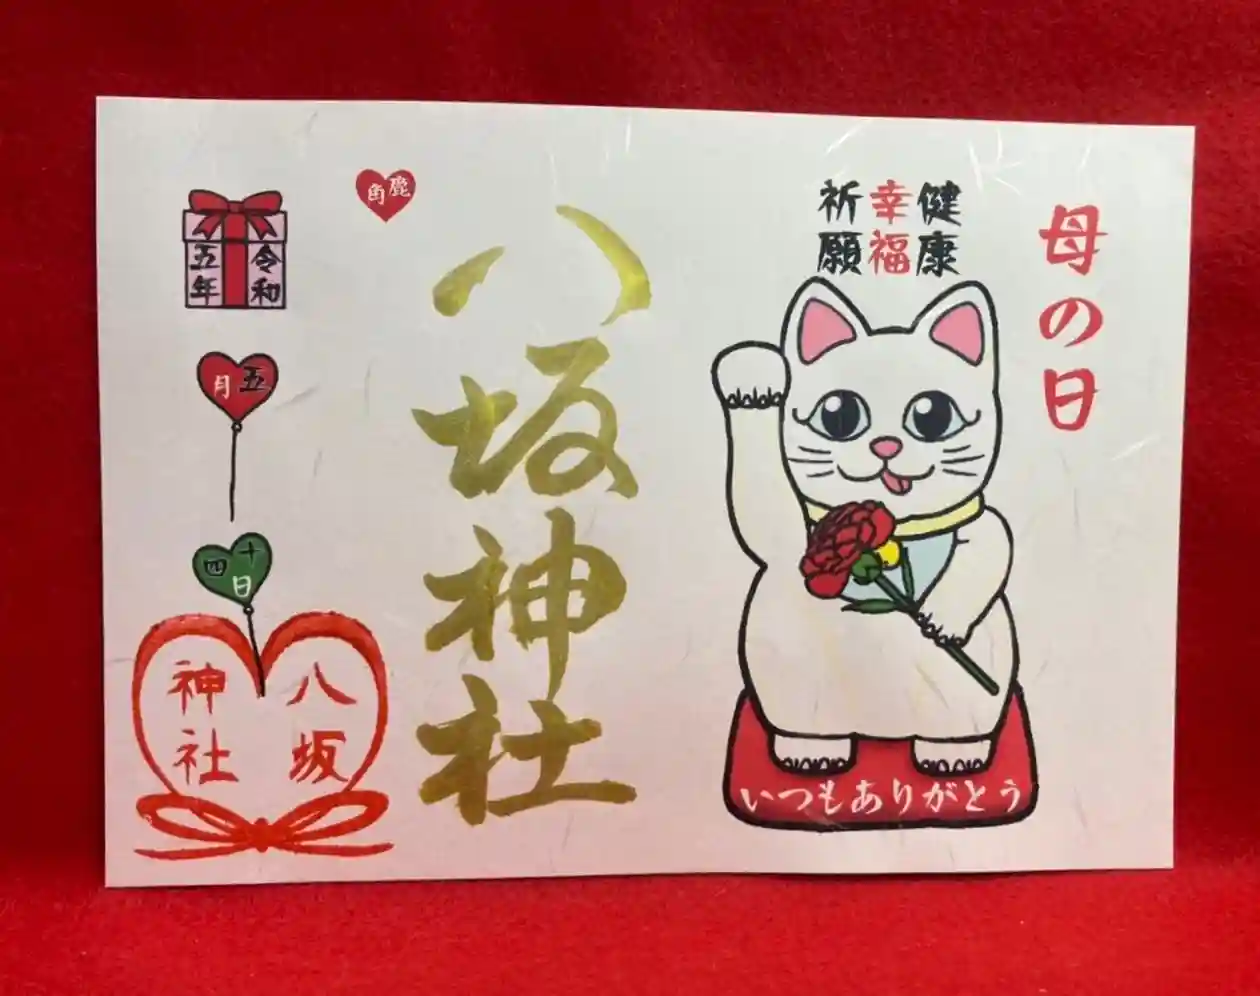 母の日
健康
幸福
祈願
いつもありがとう
鹿角
八坂神社
令和
五年
五月
十四日
八坂
神社